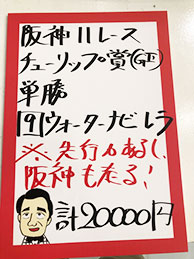 阪神11レース
チューリップ賞(GII)
単勝
9ウォーターナビレラ
※先行力あるし、
阪神も走る!
計20000円